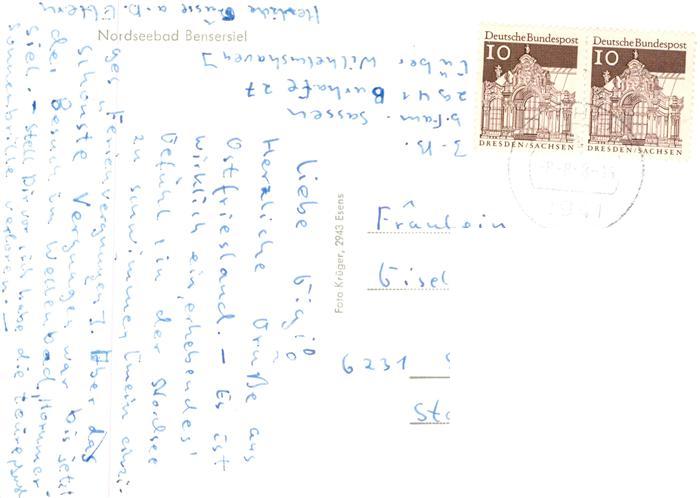 Nordseebad Bensersiel
Deutsche Bundespost
10
DRESDEN/SACHSEN
Deutsche Bundespost
10
DRESDEN/SACHSEN
2941
z. Zt.
b. Fam. Sassen
2941 Burhafe 27
(über Wilhelmshaven)
Liebe Gigi!
Herzliche Grüße aus
Ostfriesland. – Es ist
wirklich ein 'erhebendes'
Gefühl in der Nordsee
zu schwimmen (mein einzi-
ges Ferienvergnügen). Aber das
schönste Vergnügen war bis jetzt
der Besuch im Wellenbad Hommer-
siel. – Stell Dir vor ich habe die teure
Sonnenbrille verloren. –
Herzliche Grüsse a. D. Eltern
Foto Krüger, 2943 Esens
Fräulein
Gisel
6231